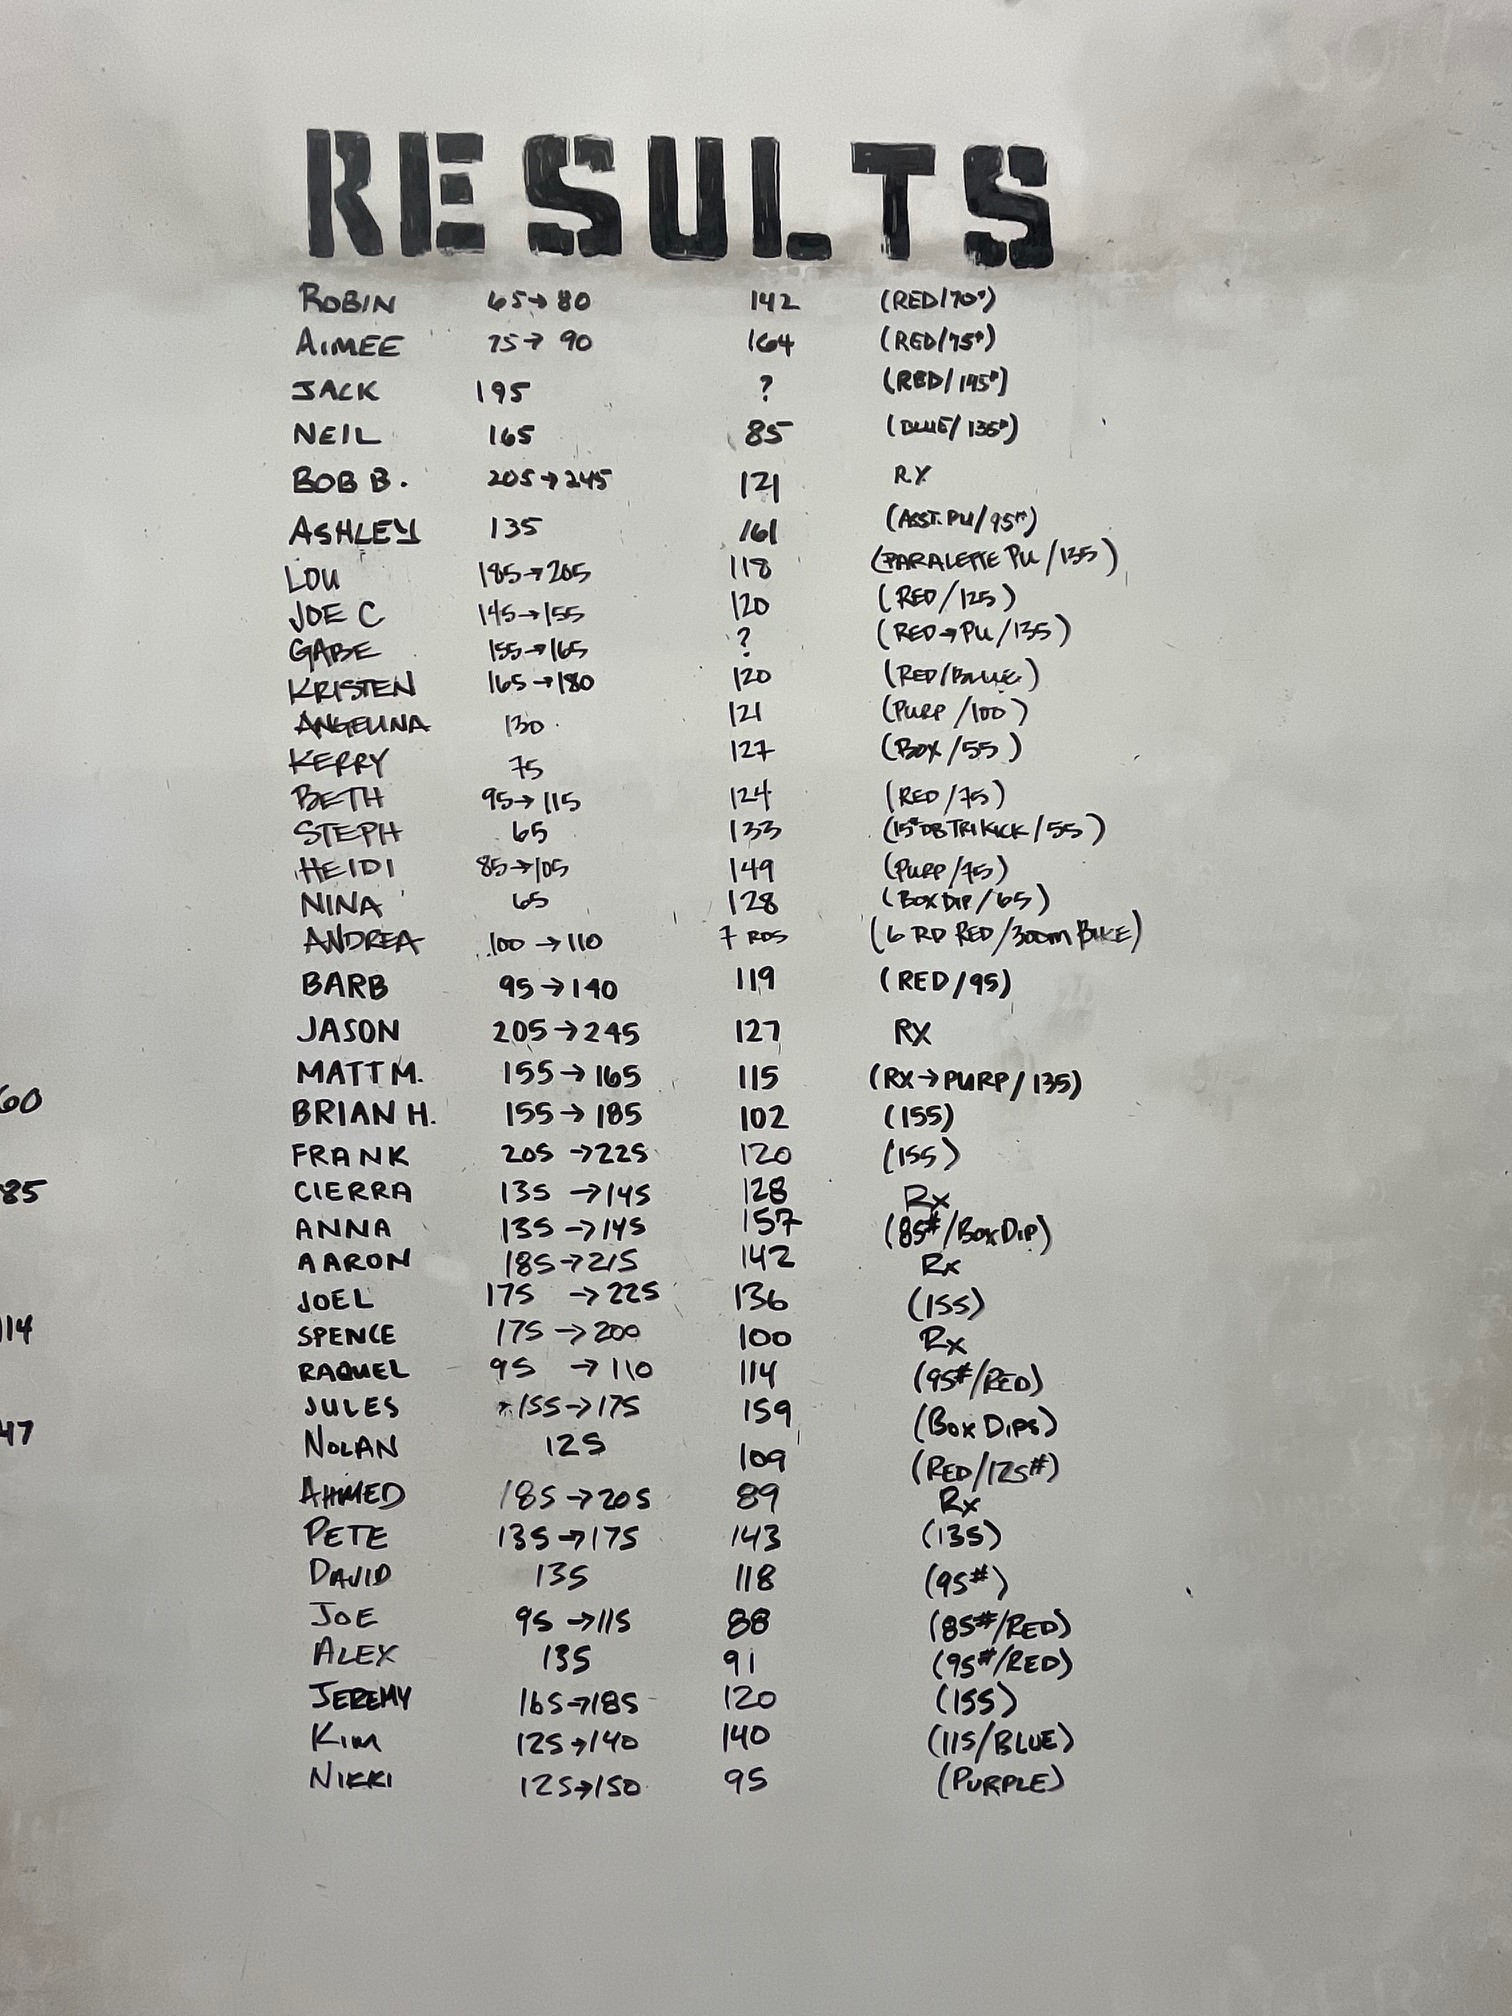 RESULTS
ROBIN 65→80 142 (RED/70#)
AIMEE 75→90 164 (RED/75#)
JACK 195 ? (RED/145#)
NEIL 165 85 (BLUE/135#)
BOB B. 205→245 121 RX
ASHLEY 135 161 (ASST. PU/95#)
LOU 185→205 118 (PARALETTE PU/135)
JOE C 145→155 120 (RED/125)
GABE 155→165 ? (RED→PU/135)
KRISTEN 165→180 120 (RED/BLUE)
ANGELINA 130 121 (PURP/100)
KERRY 75 127 (BOX/55)
BETH 95→115 124 (RED/75)
STEPH 65 133 (15# DB TRI KICK/55)
HEIDI 85→105 149 (PURP/75)
NINA 65 128 (BOX DIP/65)
ANDREA 100→110 7 RDS (6 RD RED/300m BIKE)
BARB 95→140 119 (RED/95)
JASON 205→245 127 RX
MATT M. 155→165 115 (RX→PURP/135)
60
BRIAN H. 155→185 102 (155)
FRANK 205→225 120 (155)
85
CIERRA 135→145 128 Rx
ANNA 135→145 157 (85#/BOX DIP)
AARON 185→215 142 Rx
JOEL 175→225 136 (155)
114
SPENCE 175→200 100 Rx
RAQUEL 95→110 114 (95#/RED)
JULES 155→175 159 (BOX DIPS)
47
NOLAN 125 109 (RED/125#)
AHMED 185→205 89 Rx
PETE 135→175 143 (135)
DAVID 135 118 (95#)
JOE 95→115 88 (85#/RED)
ALEX 135 91 (95#/RED)
JEREMY 165→185 120 (155)
KIM 125→140 140 (115/BLUE)
NIKKI 125→150 95 (PURPLE)